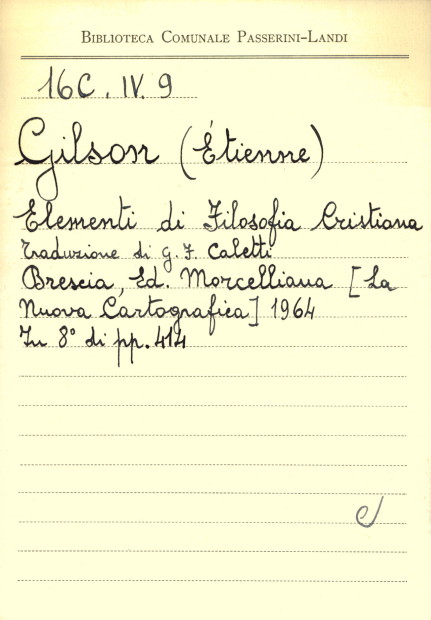 BIBLIOTECA COMUNALE PASSERINI-LANDI
16C. IV. 9
Gilson (Étienne)
Elementi di Filosofia Cristiana
Traduzione di G. F. Caletti
Brescia, Ed. Morcelliana [La
Nuova Cartografica] 1964
In 8° di pp. 414